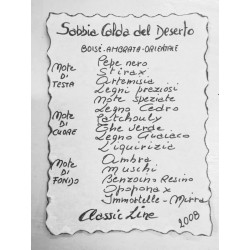 Sabbia Calda del Deserto
BOISÉ-AMBRATA-ORIENTALE
NOTE DI TESTA
Pepe nero
Stirax
Artemisia
Legni preziosi
Note speziate
NOTE DI CUORE
Legno Cedro
Patchouly
The verde
Legno Guaiaco
Liquirizia
NOTE DI FONDO
Ambra
Muschi
Benzoino Resino
Opoponax
Immortelle-Mirra
Classic Line
2008